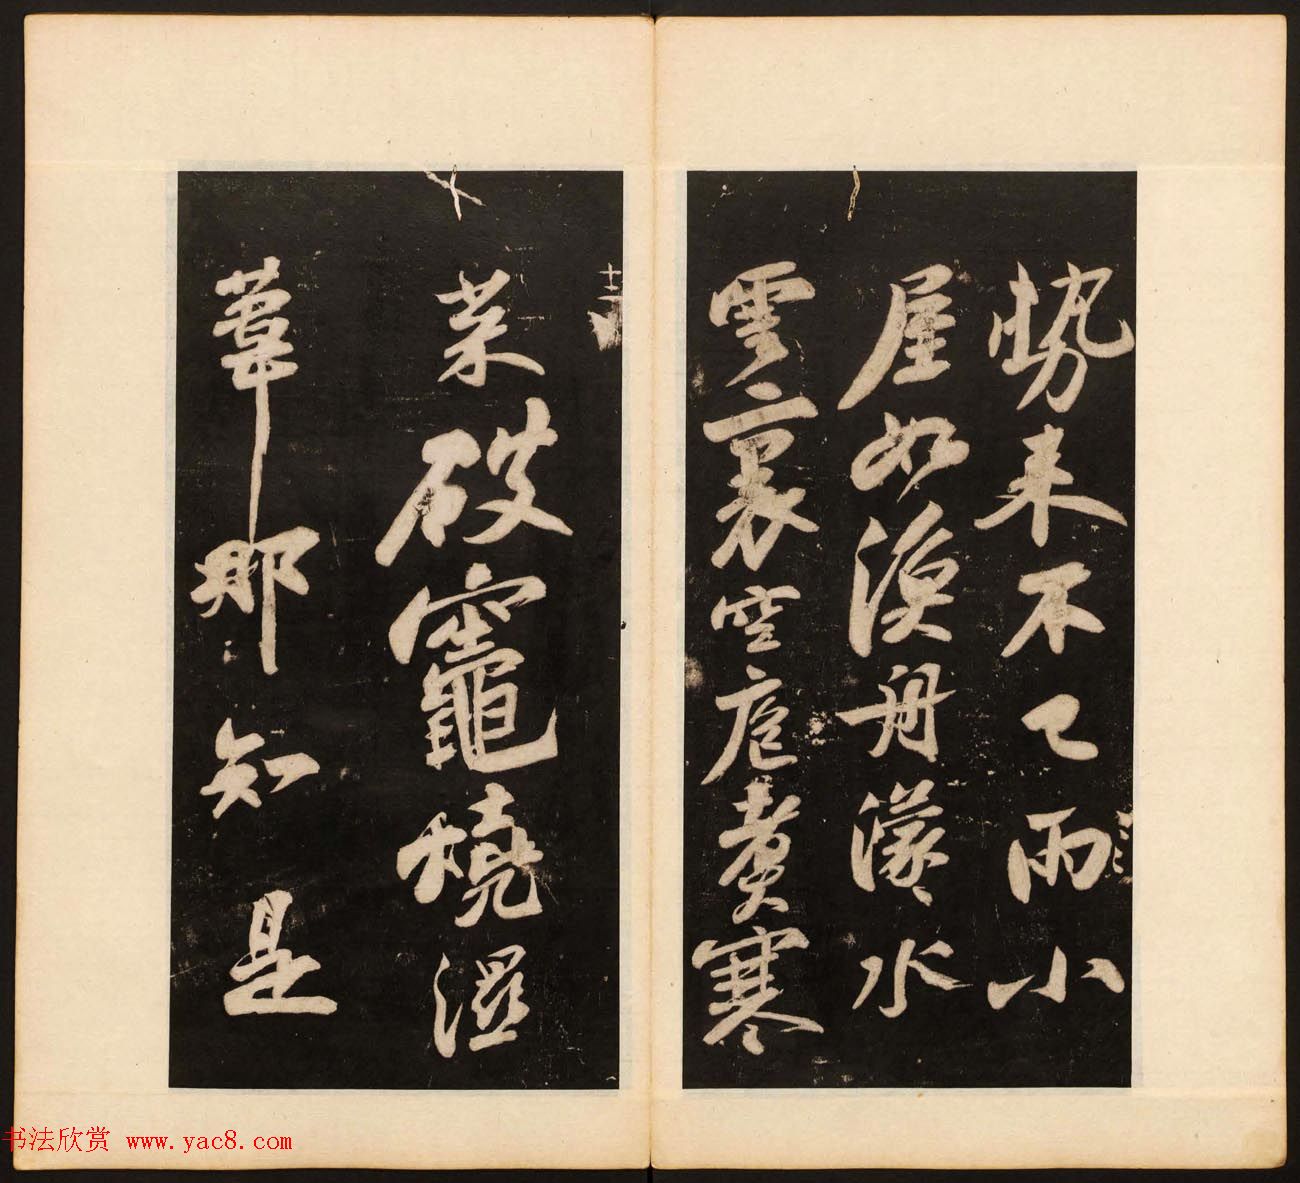 勢来不已雨小
屋如漁舟濛々水
雲裏空庖煑寒
菜破竈燒濕
葦那知是
书法欣赏 www.yac8.com